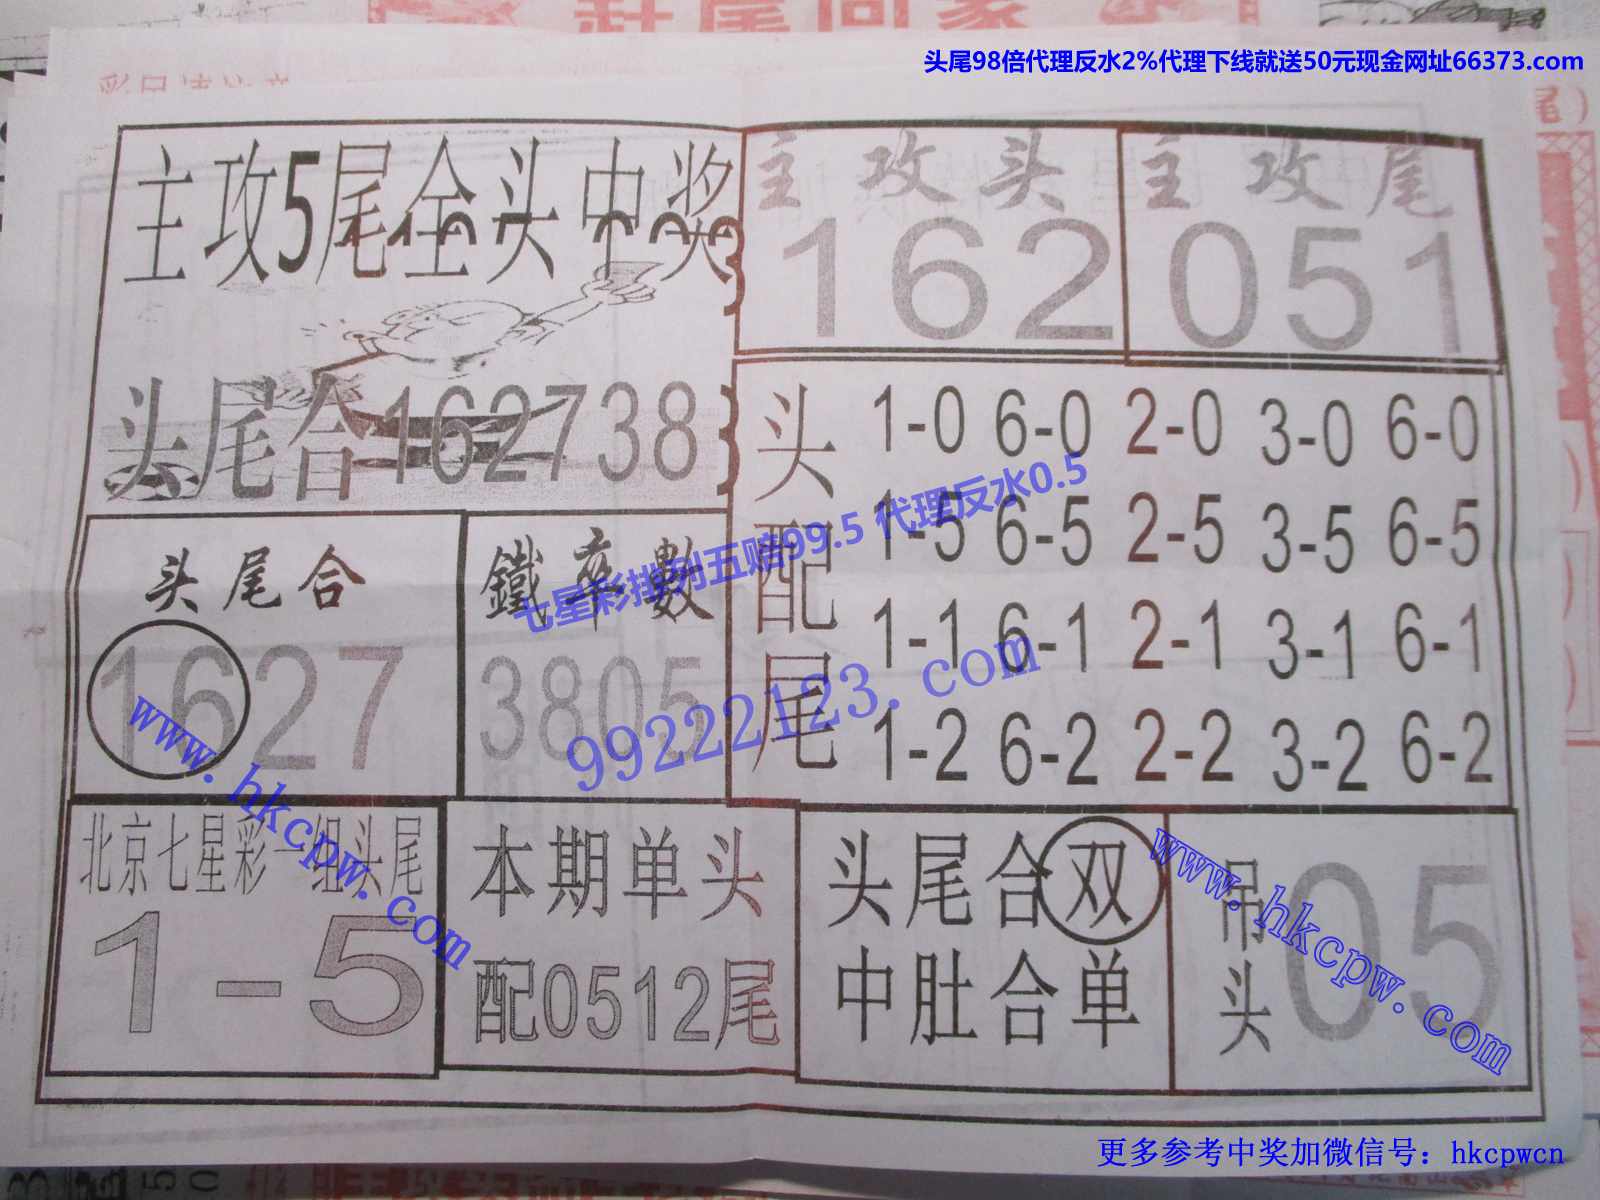 头尾98倍代理反水2%代理下线就送50元现金网址66373.com
主攻5尾全头中奖
头尾合162738
主攻头
162
主攻尾
051
头配尾
1-0 6-0 2-0 3-0 6-0
1-5 6-5 2-5 3-5 6-5
1-1 6-1 2-1 3-1 6-1
1-2 6-2 2-2 3-2 6-2
头尾合
1627
鐵率數
3805
七星彩排列五赔99.5 代理反水0.5
99222123.com
www.hkcpw.com
北京七星彩一组头尾
1-5
本期单头
配0512尾
头尾合双
中肚合单
吊头
05
www.hkcpw.com
更多参考中奖加微信号：hkcpwcn